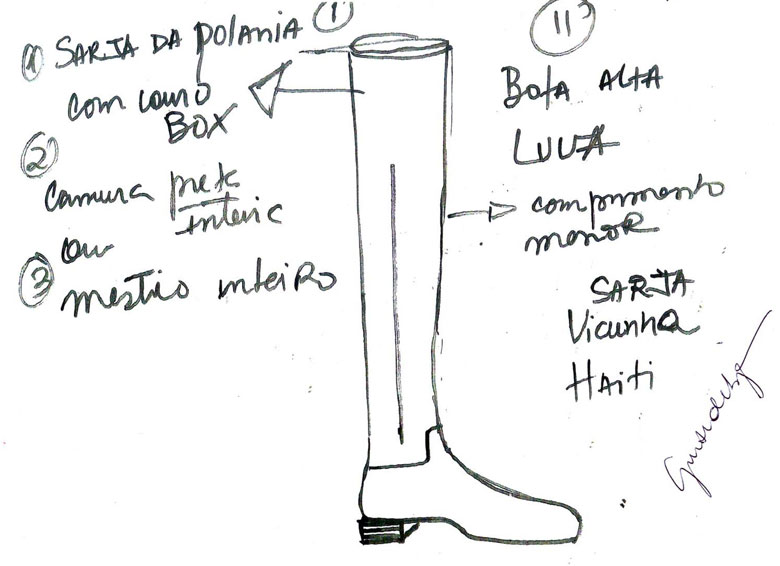 ① SARJA DA POLANIA
com couro
BOX
②
camurça preta
inteira
ou
③ mestiço inteiro
①
11
BOTA ALTA
LUVA
comprimento
menor
SARJA
Vicunha
HAITI